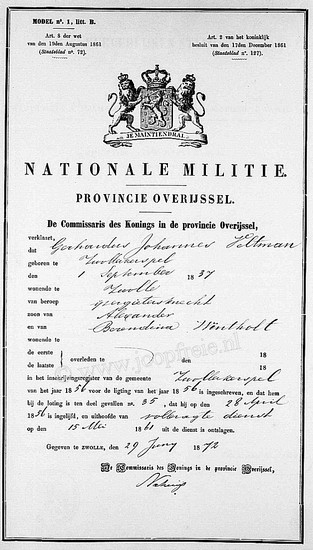 MODEL nº. 1, litt. B.
Art. 5 der wet
van den 19den Augustus 1861
(Staatsblad nº. 72).
Art. 2 van het koninklijk
besluit van den 17den December 1861
(Staatsblad nº. 127).
JE MAINTIENDRAI
NATIONALE MILITIE.
PROVINCIE OVERIJSSEL.
De Commissaris des Konings in de provincie Overijssel,
verklaart,
dat Gerhardus Johannes Veltman
geboren te Zwollekerspel
den 1 September 1837
wonende te Zwolle
van beroep
zoon van Alexander
en van Berendina
wonende te
de eerste
de laatste } overleden te den 18
18
in het inschrijvingsregister van de gemeente Zwollerkerspel
van het jaar 1856 voor de ligting van het jaar 1856 is ingeschreven, en dat hem
bij de loting is ten deel gevallen nº. 35, dat hij op den 28 April
1856 is ingelijfd, en uithoofde van volbragte dienst
op den 15 Mei 1861 uit de dienst is ontslagen.
Gegeven te ZWOLLE, den 29 Juny 1872
De Commissaris des Konings in de provincie Overijssel,
www.joopfreie.nl